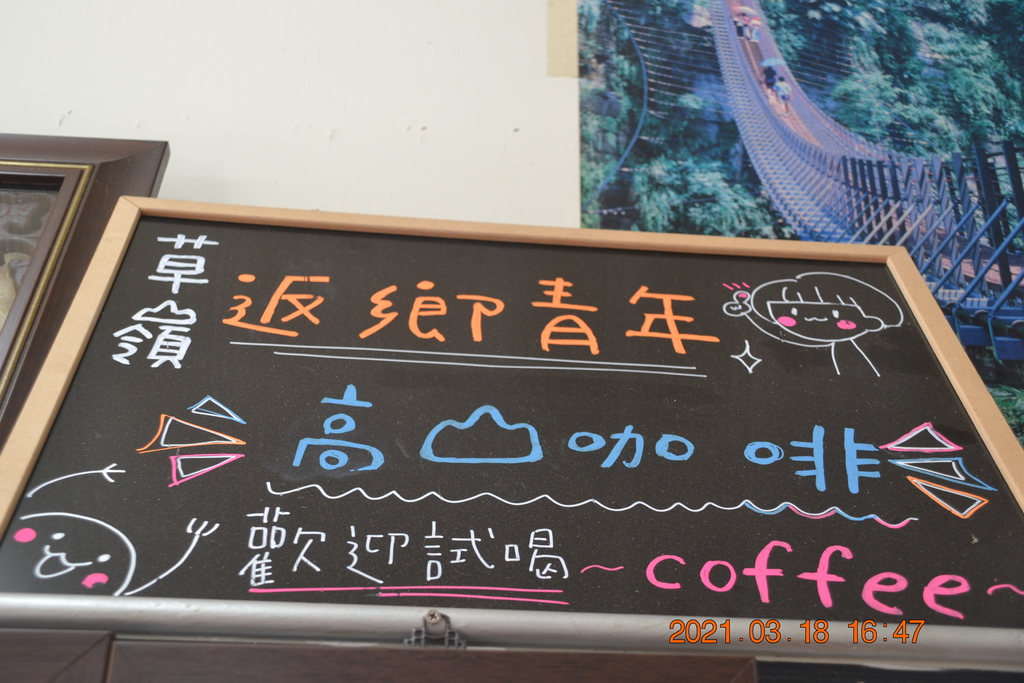 草嶺
返鄉青年
高山咖啡
歡迎試喝~coffee~
2021.03.18 16:47